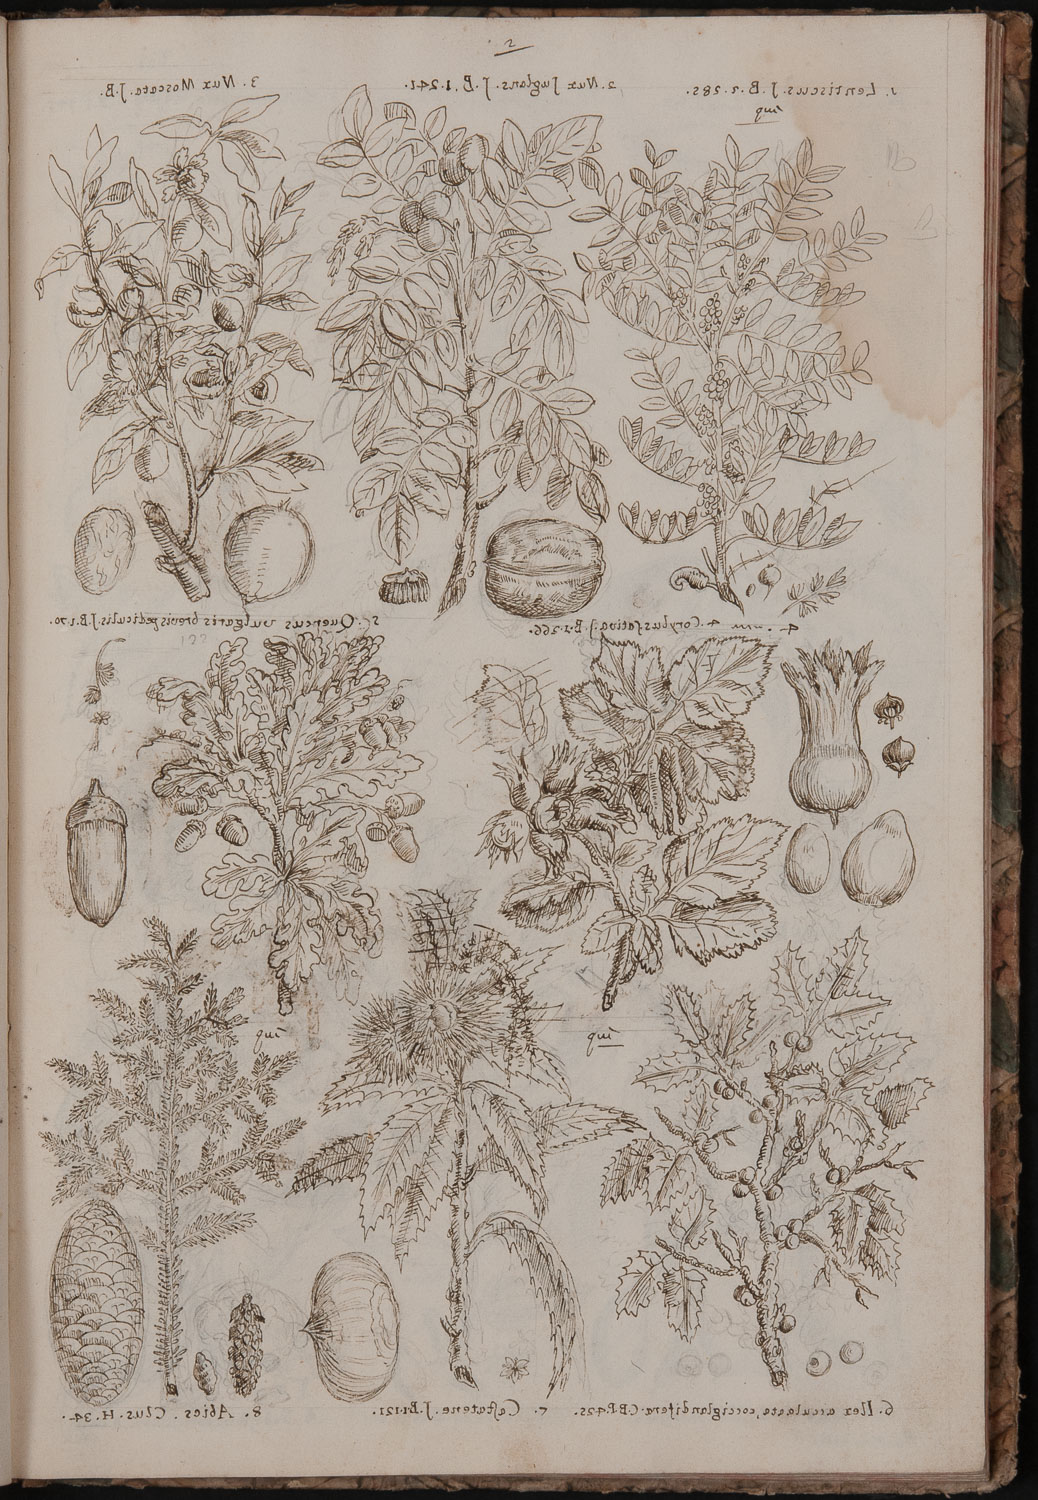 2
1. Lentiscus. J. B. 1. 285.
2. Nux Juglans. J. B. 1. 241.
3. Nux Moscata. J. B.
qui
4. Corylus sativa. J. B. 1. 266.
5. Quercus vulgaris brevis pediculis. J. B. 1. 70.
qui
qui
6. Ilex aculeata, cocciglandifera. C. B. P. 425.
7. Castanene. J. B. 1. 121.
8. Abies. Clus. H. 34.